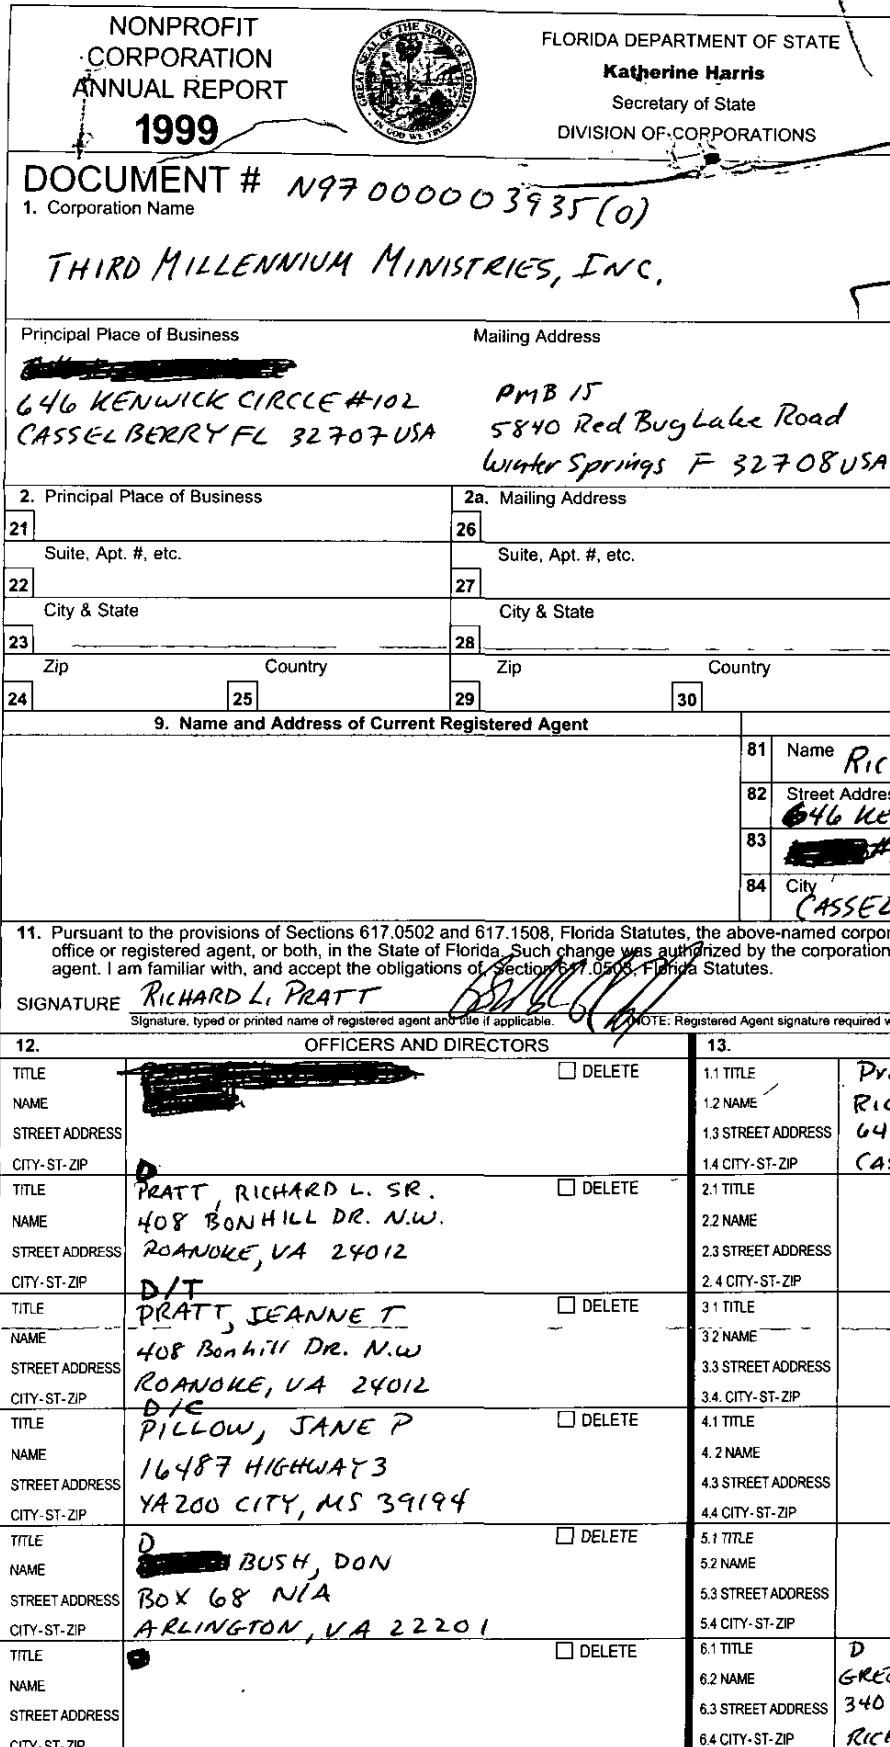 NONPROFIT
CORPORATION
ANNUAL REPORT
1999
GREAT SEAL OF THE STATE OF FLORIDA
IN GOD WE TRUST
FLORIDA DEPARTMENT OF STATE
Katherine Harris
Secretary of State
DIVISION OF CORPORATIONS
DOCUMENT # N97000003935(0)
1. Corporation Name
THIRD MILLENNIUM MINISTRIES, INC.
Principal Place of Business
646 KENWICK CIRCLE #102
CASSELBERRY FL 32707 USA
Mailing Address
PMB 15
5840 Red Bug Lake Road
Winter Springs F 32708 USA
2. Principal Place of Business
21
Suite, Apt. #, etc.
22
City & State
23
Zip Country
24 25
2a. Mailing Address
26
Suite, Apt. #, etc.
27
City & State
28
Zip Country
29 30
9. Name and Address of Current Registered Agent
81 Name RIC
82 Street Addres
646 KE
83 #
84 City
CASSEL
11. Pursuant to the provisions of Sections 617.0502 and 617.1508, Florida Statutes, the above-named corpor
office or registered agent, or both, in the State of Florida. Such change was authorized by the corporation
agent. I am familiar with, and accept the obligations of, Section 617.0503, Florida Statutes.
SIGNATURE RICHARD L. PRATT
Signature, typed or printed name of registered agent and title if applicable. NOTE: Registered Agent signature required w
12. OFFICERS AND DIRECTORS
TITLE DELETE
NAME
STREET ADDRESS
CITY-ST-ZIP D
TITLE PRATT, RICHARD L. SR. DELETE
NAME 408 BONHILL DR. N.W.
STREET ADDRESS ROANOKE, VA 24012
CITY-ST-ZIP D/T
TITLE PRATT, JEANNE T DELETE
NAME 408 Bonhill DR. N.W
STREET ADDRESS ROANOKE, VA 24012
CITY-ST-ZIP D/C
TITLE PILLOW, JANE P DELETE
NAME 16487 HIGHWAY 3
STREET ADDRESS
CITY-ST-ZIP YAZOO CITY, MS 39194
TITLE D DELETE
NAME BUSH, DON
STREET ADDRESS BOX 68 N/A
CITY-ST-ZIP ARLINGTON, VA 22201
TITLE DELETE
NAME
STREET ADDRESS
CITY-ST-ZIP
13.
1.1 TITLE
1.2 NAME RIC
1.3 STREET ADDRESS 64
1.4 CITY-ST-ZIP CAS
2.1 TITLE
2.2 NAME
2.3 STREET ADDRESS
2.4 CITY-ST-ZIP
3 1 TITLE
3 2 NAME
3.3 STREET ADDRESS
3.4. CITY-ST-ZIP
4.1 TITLE
4.2 NAME
4.3 STREET ADDRESS
4.4 CITY-ST-ZIP
5.1 TITLE
5.2 NAME
5.3 STREET ADDRESS
5.4 CITY-ST-ZIP
6.1 TITLE D
6.2 NAME GREG
6.3 STREET ADDRESS 340
6.4 CITY-ST-ZIP RICH